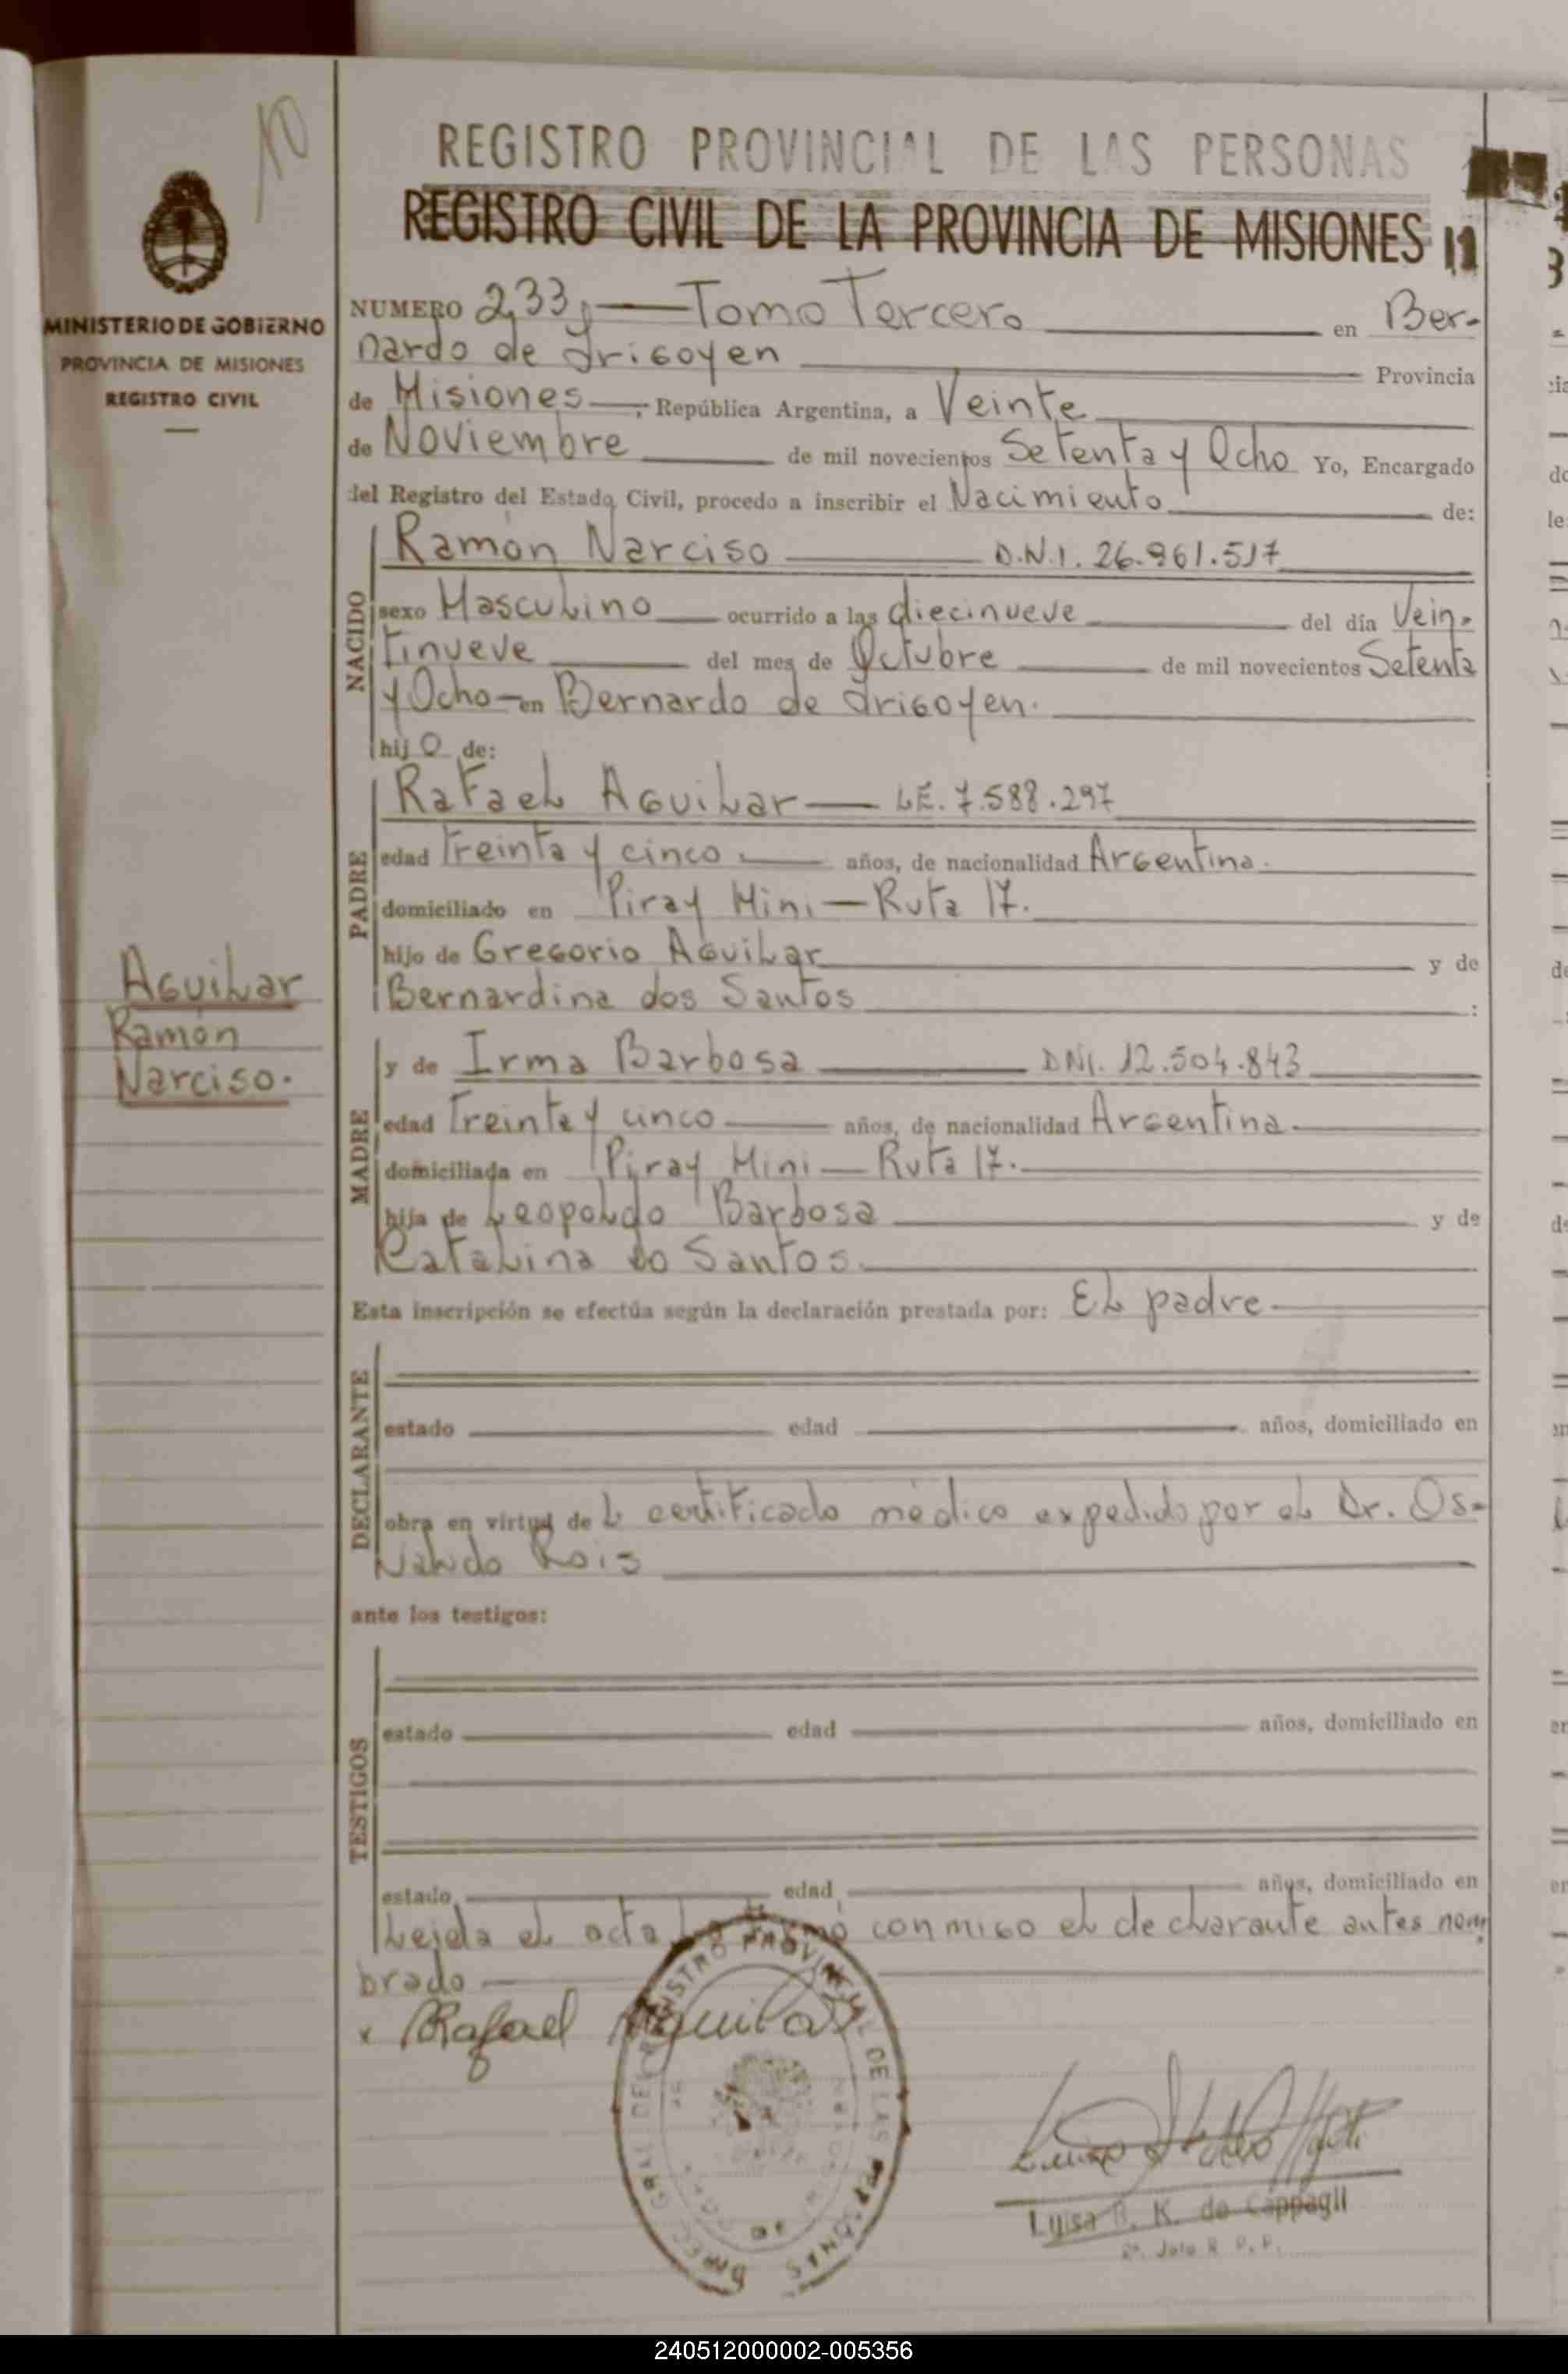 REGISTRO PROVINCIAL DE LAS PERSONAS
REGISTRO CIVIL DE LA PROVINCIA DE MISIONES
MINISTERIO DE GOBIERNO
PROVINCIA DE MISIONES
REGISTRO CIVIL
NUMERO 233, Tomo Tercero en Ber-
nardo de Irigoyen Provincia
de Misiones, República Argentina, a Veinte
de Noviembre de mil novecientos Setenta y Ocho Yo, Encargado
del Registro del Estado Civil, procedo a inscribir el Nacimiento de:
NACIDO
Ramón Narciso D.N.I. 26.961.517
sexo Masculino ocurrido a las diecinueve del día Vein-
tinueve del mes de Octubre de mil novecientos Setenta
y Ocho en Bernardo de Irigoyen.
hijo de:
PADRE
Rafael Aguilar L.E. 7.588.297
edad Treinta y cinco años, de nacionalidad Argentina.
domiciliado en Piray Mini - Ruta 17.
hijo de Gregorio Aguilar y de
Bernardina dos Santos :
Aguilar
Ramón
Narciso.
MADRE
y de Irma Barbosa DNI. 12.504.843
edad Treinta y cinco años, de nacionalidad Argentina
domiciliada en Piray Mini - Ruta 17.
hija de Leopoldo Barbosa y de
Catalina do Santos.
Esta inscripción se efectúa según la declaración prestada por: El padre
DECLARANTE
estado edad años, domiciliado en
obra en virtud del certificado médico expedido por el Dr. Os-
valdo Rois
ante los testigos:
TESTIGOS
estado edad años, domiciliado en
estado edad años, domiciliado en
Leida el acta la firmó conmigo el declarante antes nom-
brado
x Rafael Aguilar
REGISTRO PROVINCIAL DE LAS PERSONAS
Luisa R. K. de Cappagli
240512000002-005356